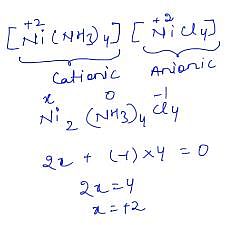 +2 +2
[Ni(NH3)4] [NiCl4]
Cationic Anionic
x 0 -1
Ni2 (NH3)4 Cl4
2x + (-1)×4 = 0
2x = 4
x = +2